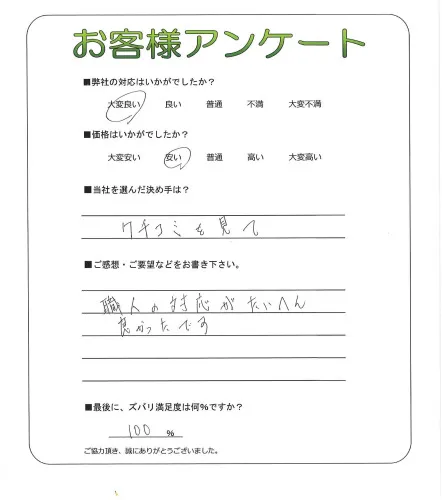 お客様アンケート
■弊社の対応はいかがでしたか？
大変良い 良い 普通 不満 大変不満
■価格はいかがでしたか？
大変安い 安い 普通 高い 大変高い
■当社を選んだ決め手は？
クチコミを見て
■ご感想・ご要望などをお書き下さい。
職人の対応がたいへん
良かったです
■最後に、ズバリ満足度は何%ですか？
100 %
ご協力頂き、誠にありがとうございました。